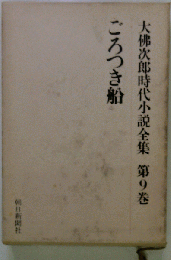 大佛次郎時代小説全集 第9巻
ごろつき船
朝日新聞社